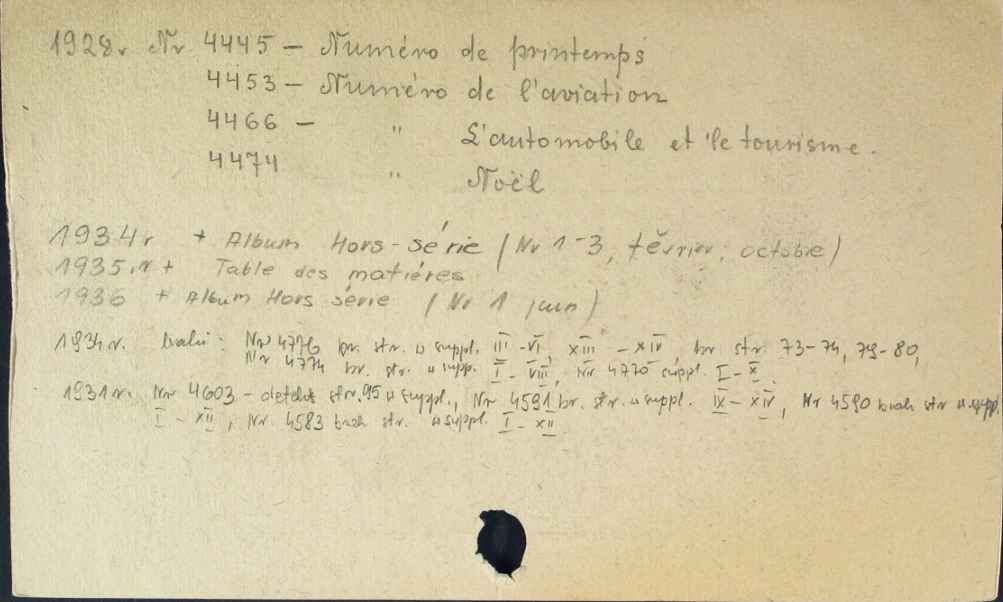 1928r. Nr 4445 – Numéro de printemps
4453 – Numéro de l'aviation
4466 – " L'automobile et le tourisme.
4474 " Noël
1934r + Album Hors-série (Nr 1-3, février, octobre)
1935.r + Table des matiéres
1936 + Album Hors série (Nr 1 juin)
1934r. braki: Nr 4776 br. str. w suppl. III - VI, XIII - XIV, br str. 73-74, 79-80,
Nr 4774 br. str. w supp. I - VIII, Nr 4770 suppl. I - X
1931r. Nr 4603 - str. 95 w suppl., Nr 4591 br. str. w suppl. IX - XIV, Nr 4590 brak str w supp
I - XII, Nr. 4583 brak str. w suppl. I - XII